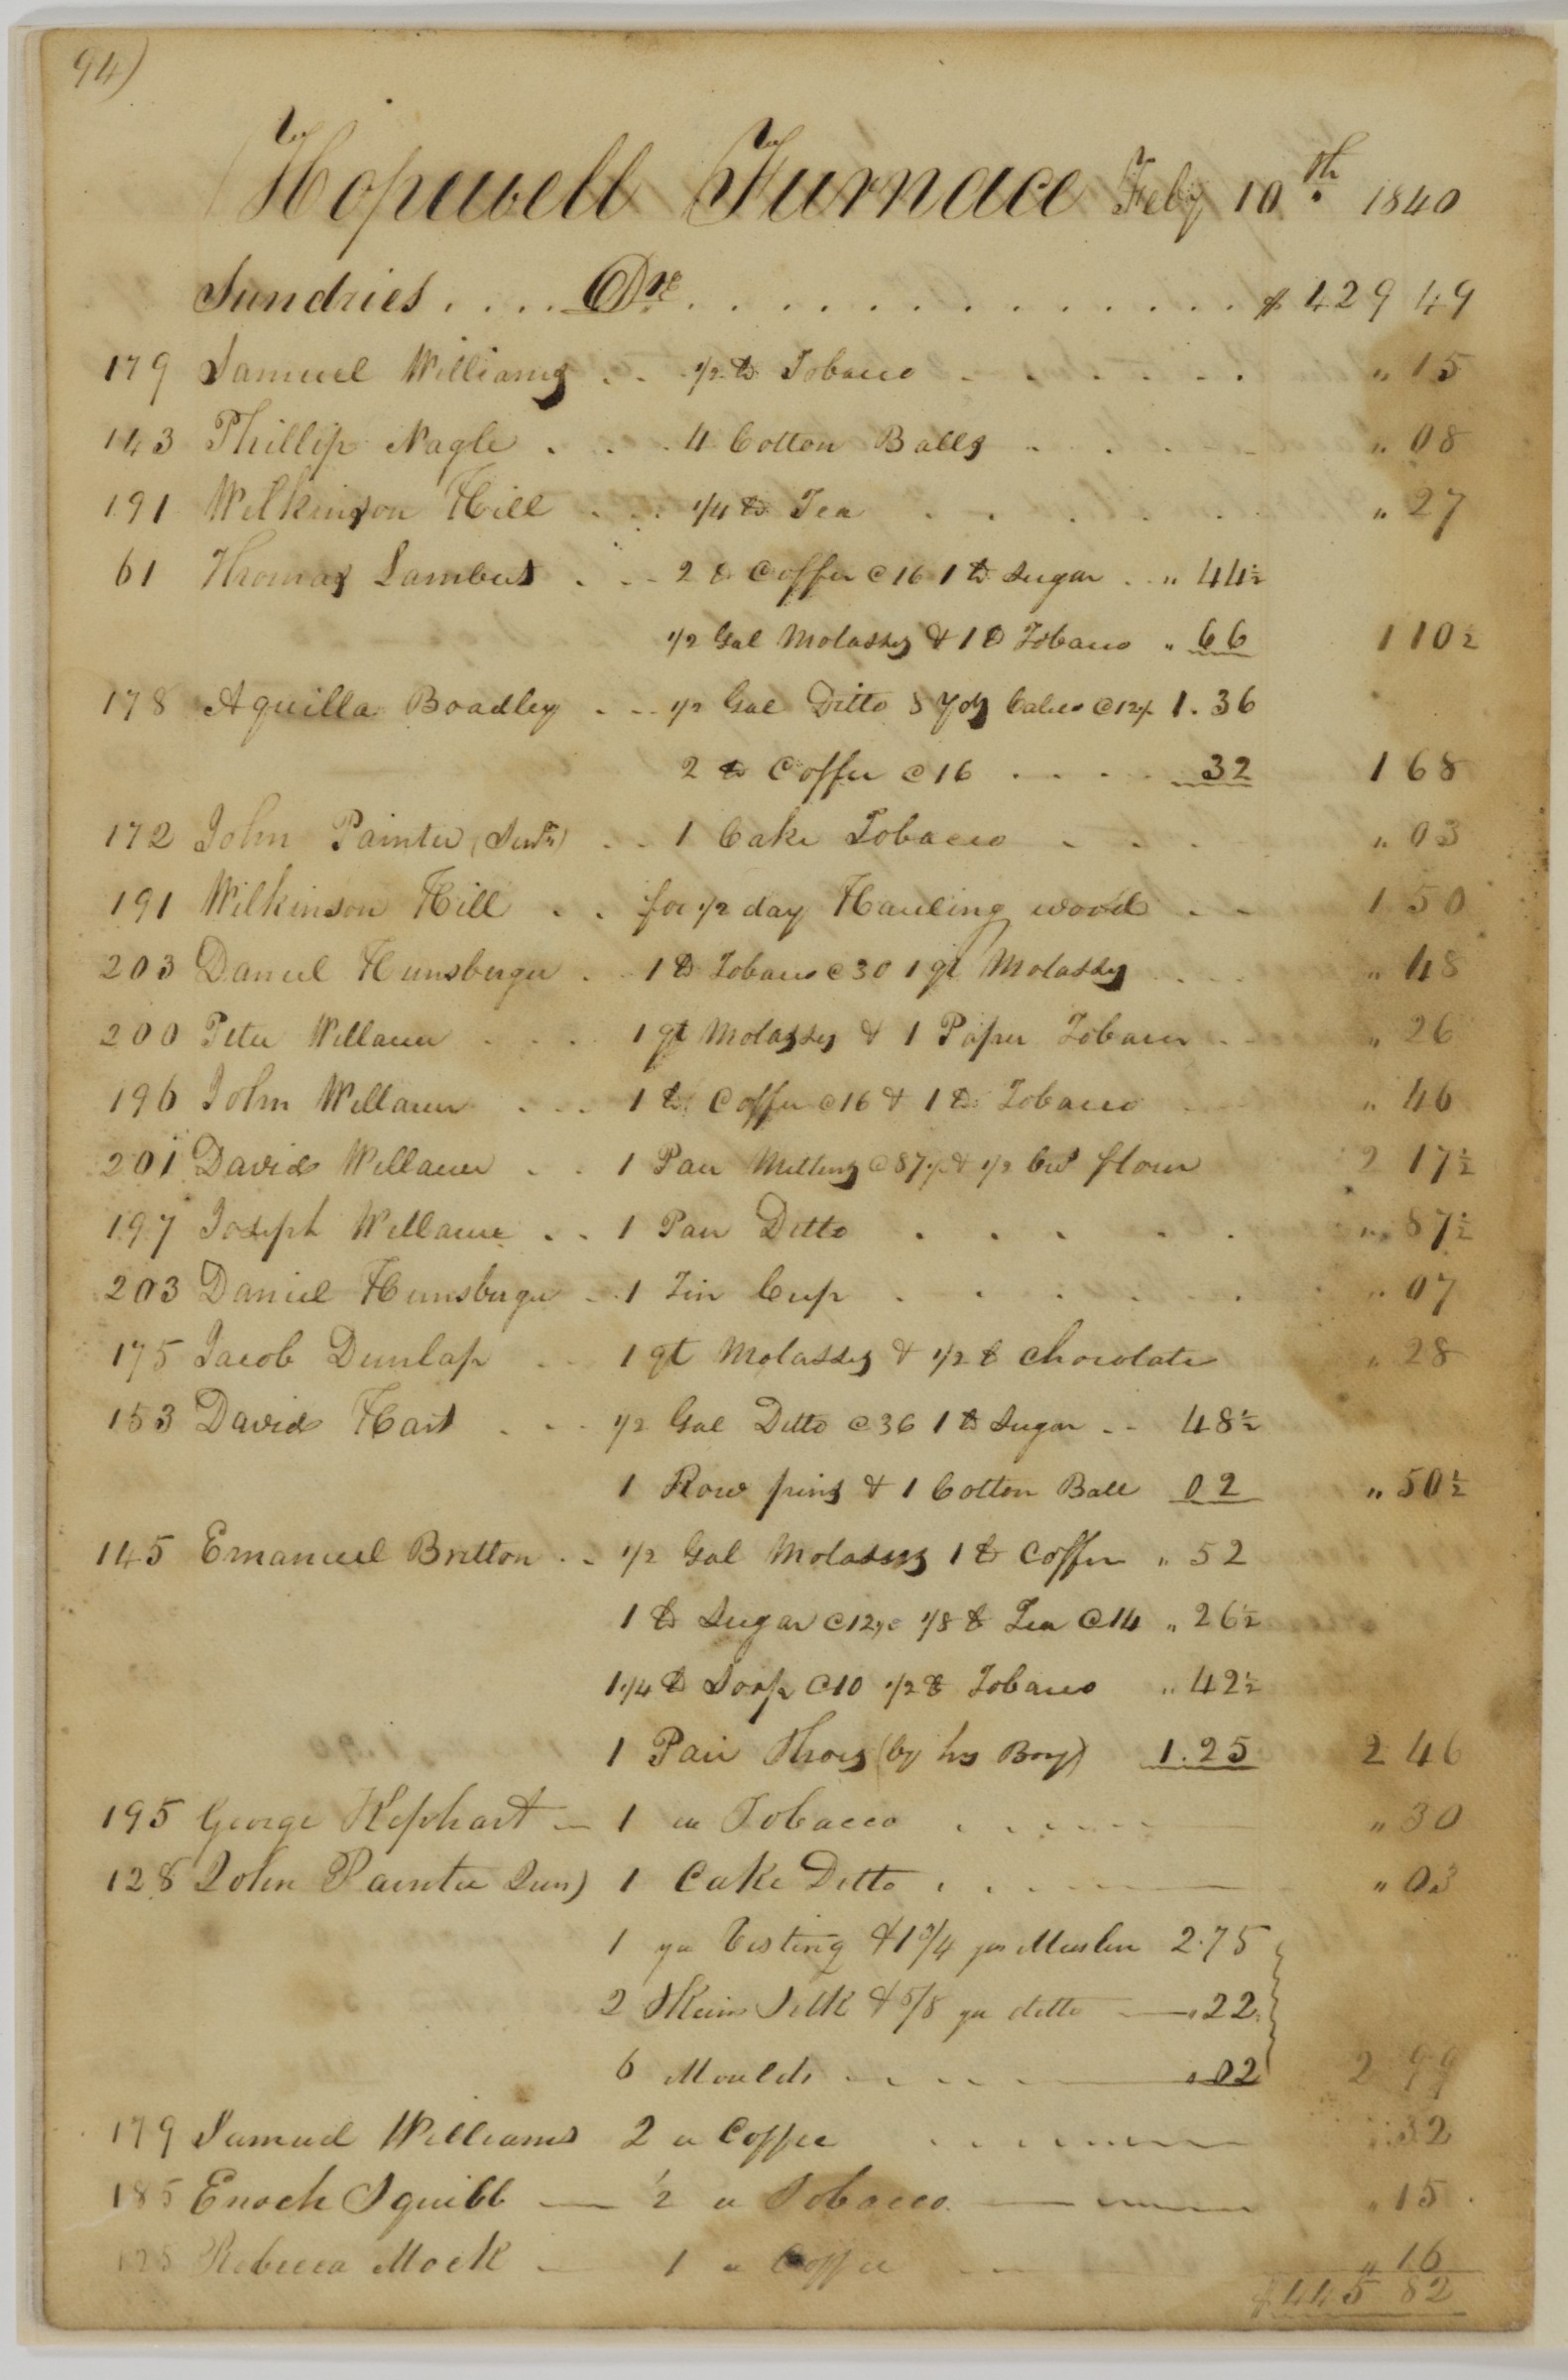 94)
Hopewell Furnace Feby 10th 1840
Sundries .... Drs ............ $ 429 49
179 Samuel Williams .. 1/2 lb Tobacco . . . . . " 15
143 Phillip Nagle . . . 4 Cotton Balls . . . . " 08
191 Wilkinson Hill . . . 1/4 lb Tea . . . . . " 27
61 Thomas Lambert . . . 2 lb Coffee @ 16 1 lb Sugar . " 44 1/2
1/2 Gal Molasses & 1 lb Tobacco " 66 1 10 1/2
178 Aquilla Boadley . . . 1/2 Gal Ditto 8 Yds Calico @ 12 1/2 1.36
2 lb Coffee @ 16 . . . . 32 1 68
172 John Painter (Senr) . . 1 Cake Tobacco . . . " 03
191 Wilkinson Hill . . for 1/2 day Hauling wood . . 1 50
203 Daniel Hunsberger . . 1 lb Tobacco @ 30 1 qt Molasses . . . " 48
200 Peter Willauer . . . 1 qt Molasses & 1 Paper Tobacco . . " 26
196 John Willauer . . . 1 lb Coffee @ 16 & 1 lb Tobacco " 46
201 David Willauer . . 1 Pair Mittens @ 87 1/2 & 1/2 Cwt flour 2 17 1/2
197 Joseph Willauer . . 1 Pair Ditto . . . . . " 87 1/2
203 Daniel Hunsberger . . 1 Tin Cup . . . . . " 07
175 Jacob Dunlap . . 1 qt Molasses & 1/2 lb Chocolate " 28
153 David Hart . . . 1/2 Gal Ditto @ 36 1 lb Sugar . . 48 1/2
1 Row pins & 1 Cotton Ball 02 " 50 1/2
145 Emanuel Britton . . 1/2 Gal Molasses 1 lb Coffee " 52
1 lb Sugar @ 12 1/2 1/8 lb Tea @ 14 " 26 1/2
1 1/4 lb Soap @ 10 1/2 lb Tobacco " 42 1/2
1 Pair Shoes (by his Boy) 1.25 2 46
195 George Kephart — 1 " Tobacco . . . . . " 30
128 John Painter Jun) 1 Cake Ditto . . . " 03
1 yd Vesting & 1 3/4 yds Muslin 2.75
2 Skeins Silk & 5/8 yd ditto — .22
6 Moulds . . . . .02 2 99
179 Samuel Williams 2 " Coffee . . . . " 32
185 Enoch Squibb — 1/2 " Tobacco — " 15
125 Rebecca Mock — 1 " Coffee — " 16
$445 82